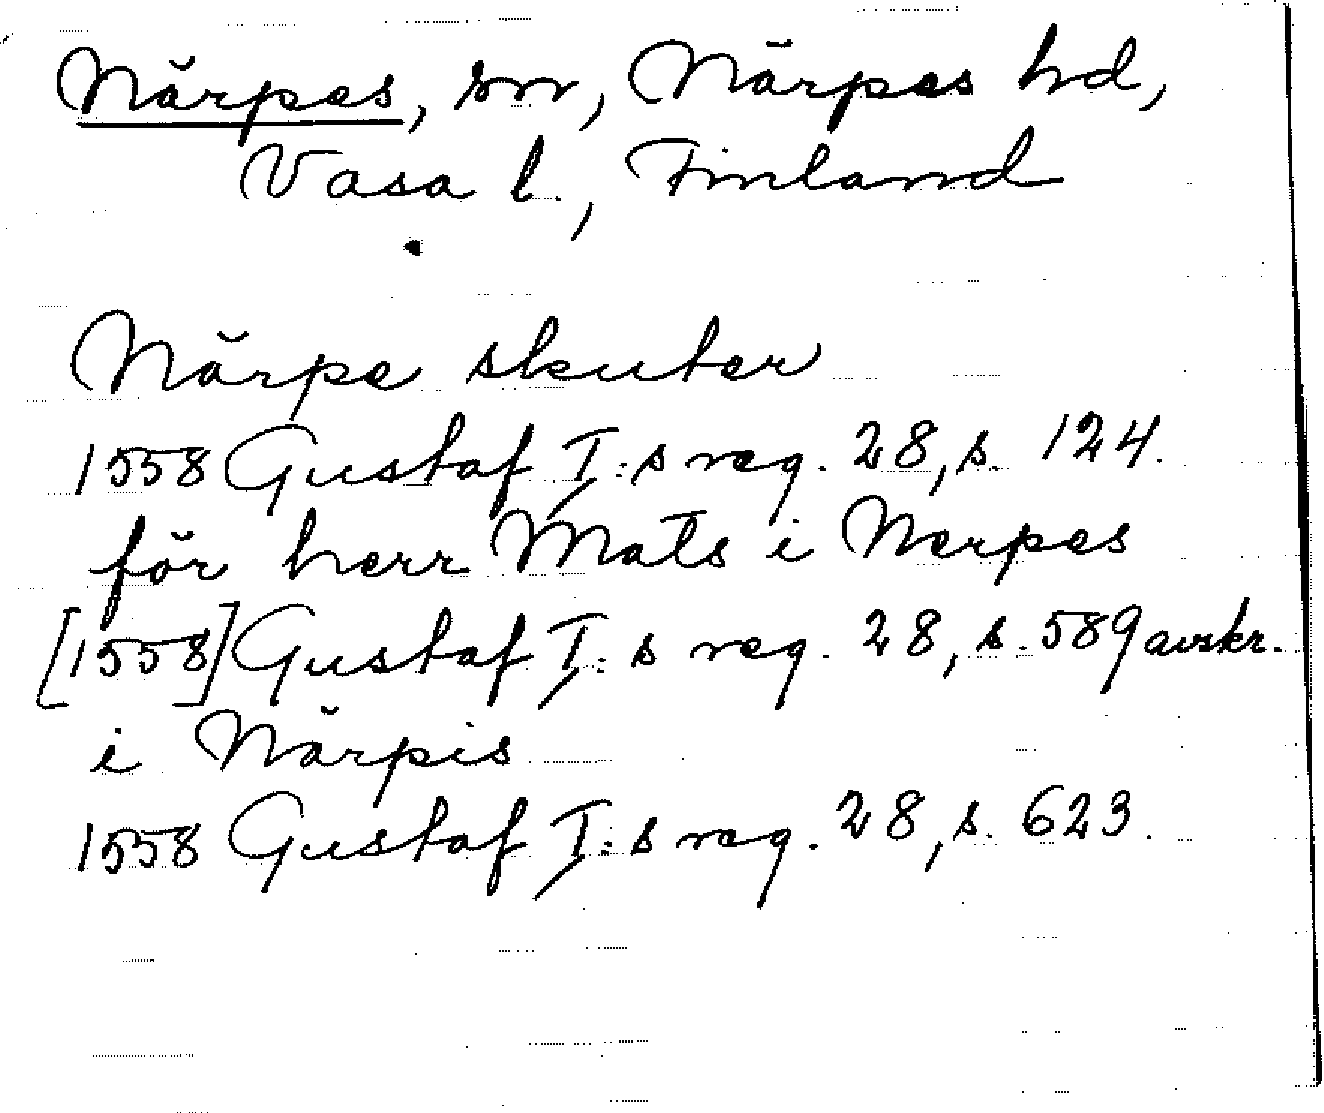 Närpes, sn, Närpes hd,
Vasa l., Finland
Närpe skuter
1558 Gustaf I:s reg. 28, s. 124.
för herr Mats i Nerpes
[1558] Gustaf I:s reg. 28, s. 589 avskr.
i Närpis
1558 Gustaf I:s reg. 28, s. 623.